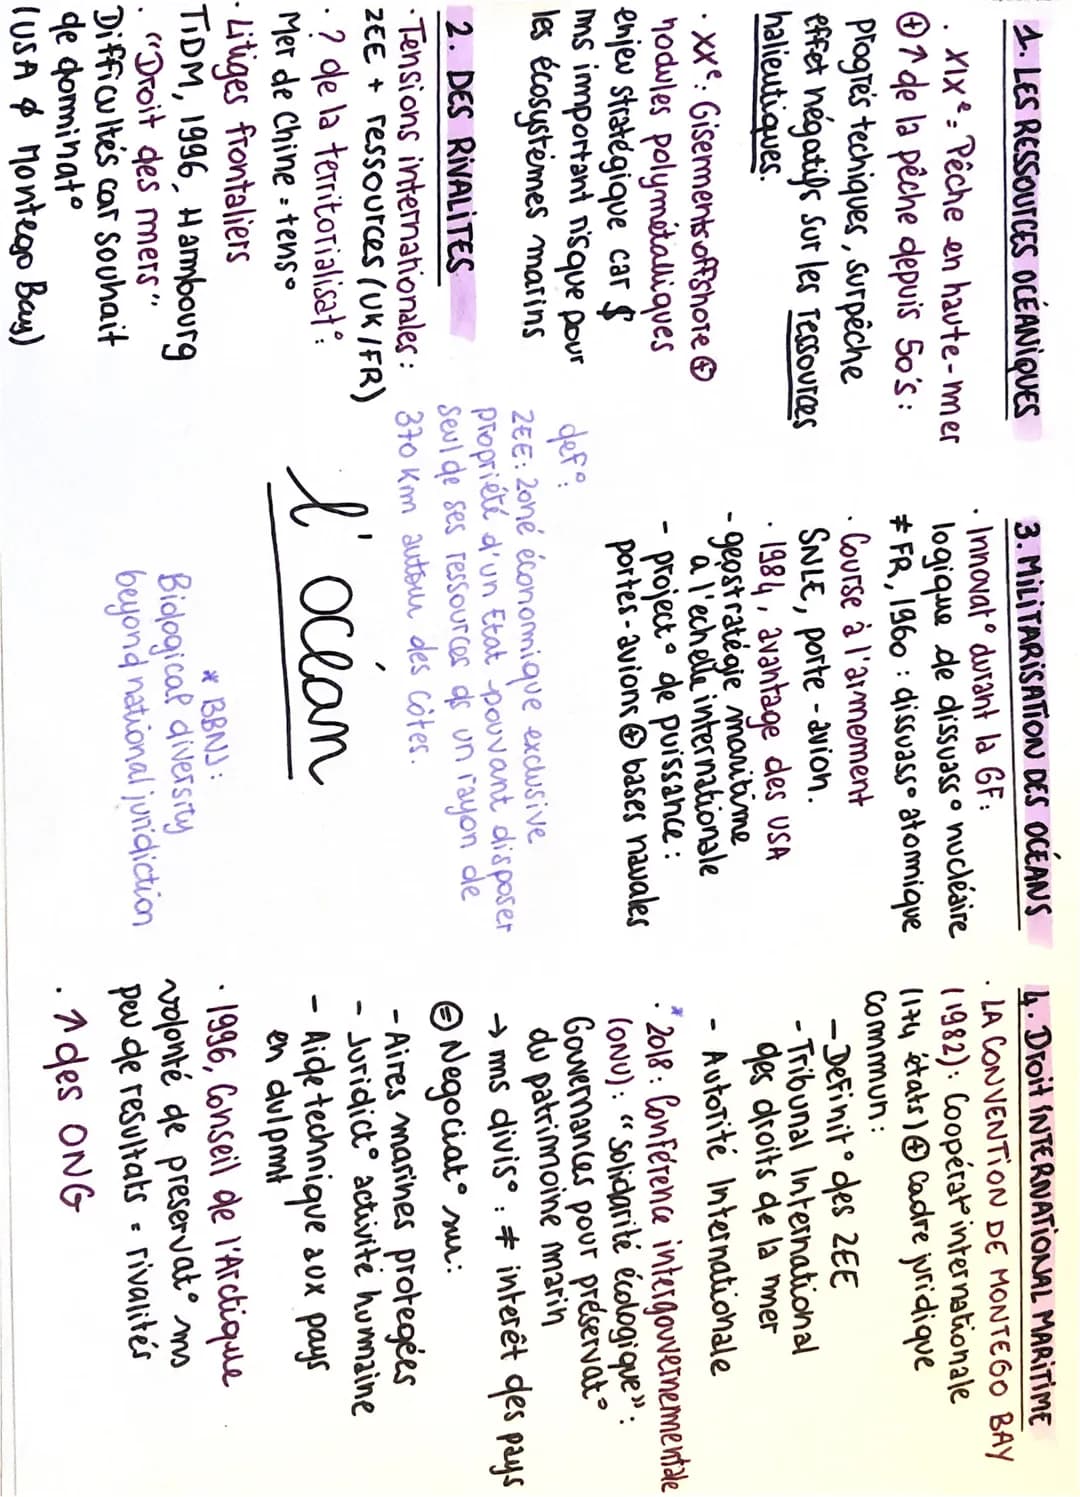 1. LES RESSOURCES OCÉANIQUES
. XIXe = Pêche en haute-mer
⊕ ↗ de la pêche depuis 50's :
progrés techiques, surpêche
effet négatifs sur les ressources
halieutiques.
. XXe : Gisements offshore ⊕
nodules polymétalliques
enjeu stratégique car $
ms important risque pour
les écosystèmes marins
2. DES RIVALITES
. Tensions internationales :
ZEE + ressources (UK/FR)
. ? de la territorialisat° :
Mer de Chine = tens°
. Litiges frontaliers
TIDM, 1996, Hambourg
. "Droit des mers"
Difficultés car souhait
de dominat°
(USA & Montego Bay)
def° :
ZEE : Zone économique exclusive
propriété d'un Etat pouvant disposer
seul de ses ressources ds un rayon de
370 Km autour des côtes.
l'océan
* BBNJ :
Biological diversity
beyond national juridiction
3. MILITARISATION DES OCÉANS
. Innovat° durant la GF :
logique de dissuass° nucléaire
≠ FR, 1960 : dissuass° atomique
. Course à l'armement
SNLE, porte-avion.
. 1984, avantage des USA
- géostratégie maritime
à l'echelle internationale
- project° de puissance :
portes-avions ⊕ bases navales
4. Droit INTERNATIONAL MARITIME
. LA CONVENTION DE MONTEGO BAY
(1982) : Coopérat° internationale
(174 états) ⊕ Cadre juridique
commun :
- Definit° des ZEE
- Tribunal International
des droits de la mer
- Autorité Internationale
* . 2018 : Conférence intergouvernementale
(ONU) : "Solidarité écologique" :
Gouvernances pour préservat°
du patrimoine marin
→ ms divis° : ≠ interêt des pays
⊜ Negociat° sur :
- Aires marines protegées
- Juridict° activité humaine
- Aide technique aux pays
en dvlpmt
. 1996, Conseil de l'Arctique
volonté de preservat° ms
peu de resultats = rivalités
. ↗ des ONG